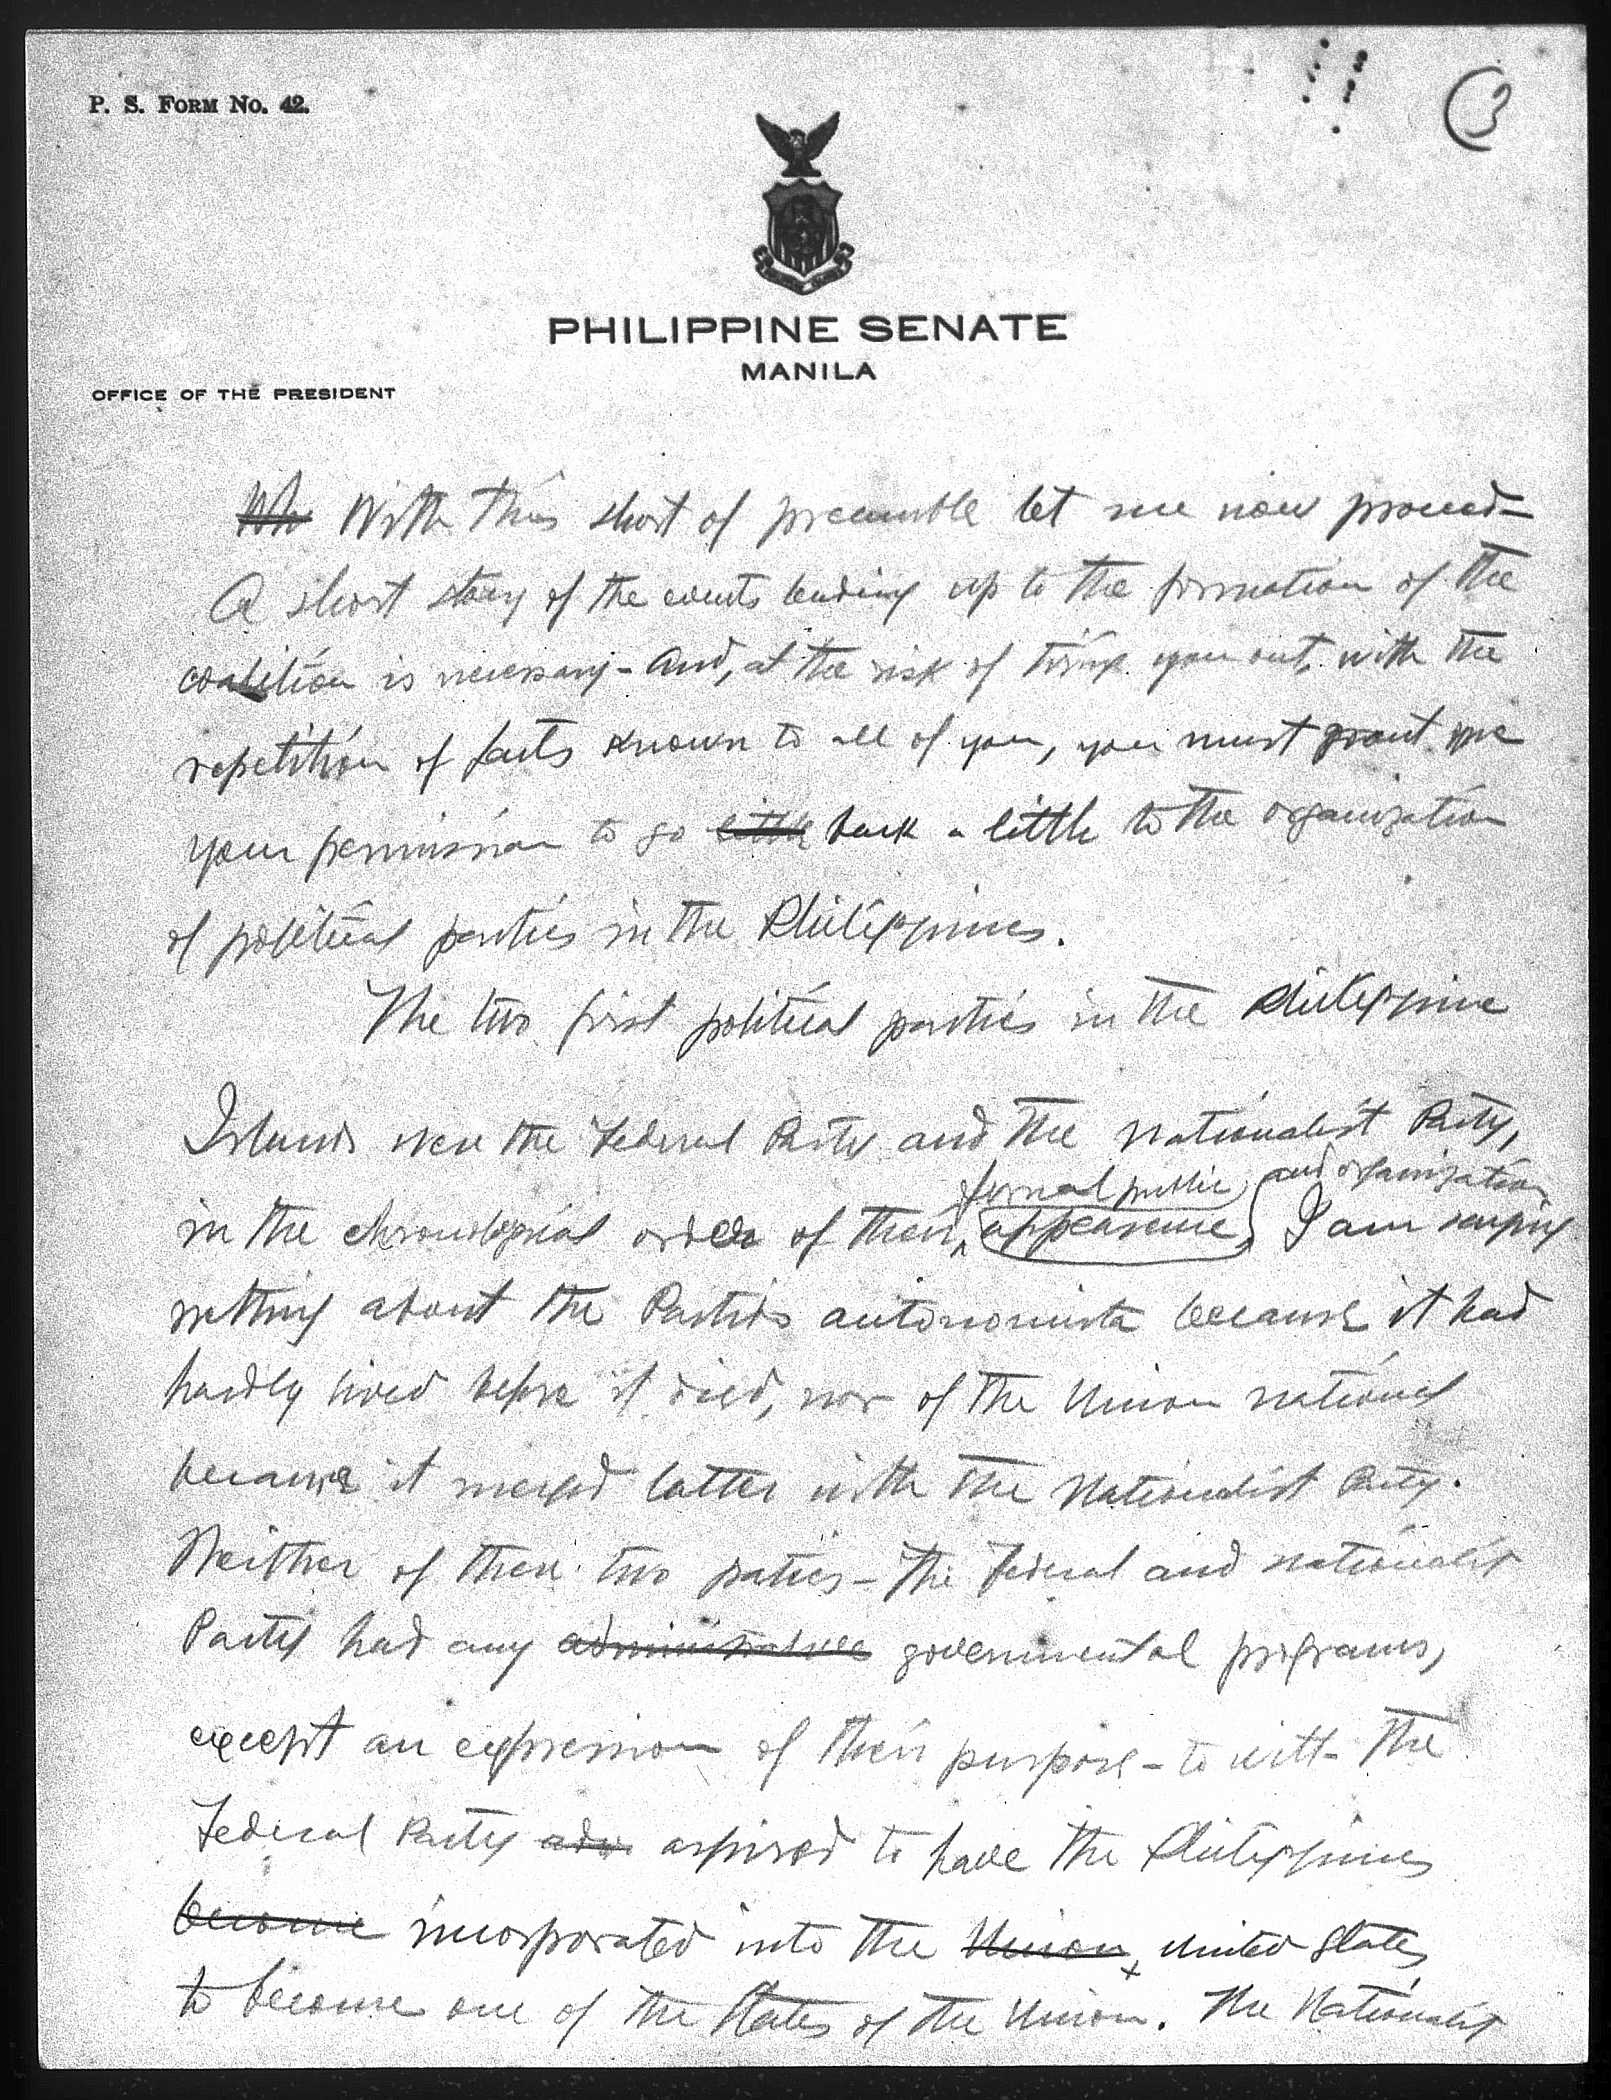 P. S. FORM NO. 42.
3
PHILIPPINE SENATE
MANILA
OFFICE OF THE PRESIDENT
Wh With this short of preamble let me now proceed—
A short story of the events leading up to the formation of the
coalition is necessary - And, at the risk of tiring you out, with the
repetition of facts known to all of you, you must grant me
your permission to go little back a little to the organization
of political parties in the Philippines.
The two first political parties in the Philippine
Islands were the Federal Party and the Nationalist Party,
formal public and organization
in the chronological order of their appearance, I am saying
nothing about the Partido autonomista because it had
hardly lived before it died, nor of the Union national
because it merged latter with the Nationalist Party.
Neither of these two parties - the Federal and nationalist
Party had any administrative governmental programs,
except an expression of their purpose - to witt - The
Federal Party adv aspired to have the Philippines
become incorporated into the Union, United States
to become one of the States of the Union. The Nationalist